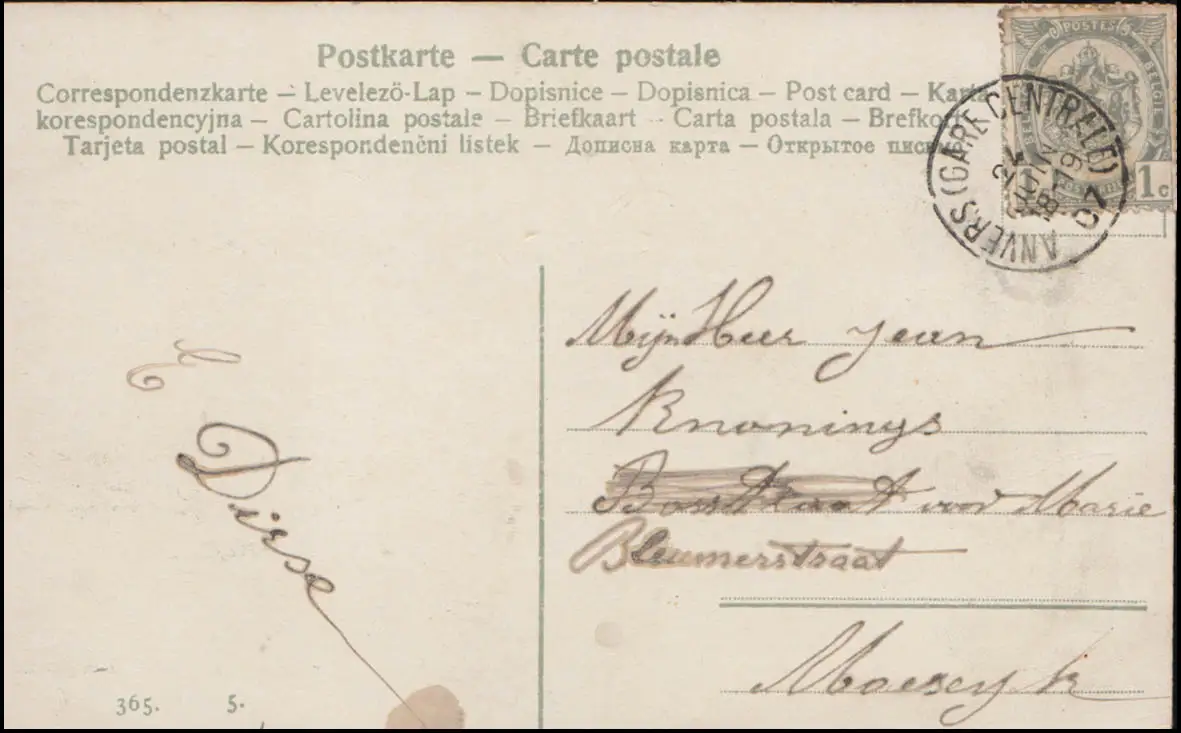 Postkarte — Carte postale
Correspondenzkarte — Levelező-Lap — Dopisnice — Dopisnica — Post card — Kart
korespondencyjna — Cartolina postale — Briefkaart — Carta postala — Brefkort
Tarjeta postal — Korespondenčni listek — Дописна карта — Открытое пис
POSTES
BELGIE
1c
ANVERS (GARE CENTRALE)
24
JUIN
18-19
07
MijnHeer Jean
Knonings
voor Marie
Bleumerstraat
Maeseyk
Dirse
365. 5.